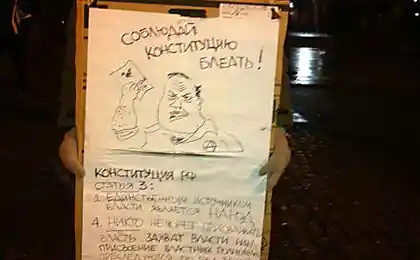 СОБЛЮДАЙ
КОНСТИТУЦИЮ
БЛЕАТЬ!
КОНСТИТУЦИЯ РФ
СТАТЬЯ 3:
1. ЕДИНСТВЕННЫМ ИСТОЧНИКОМ
ВЛАСТИ ЯВЛЯЕТСЯ НАРОД
4. НИКТО НЕ МОЖЕТ ПРИСВАИВАТЬ
ВЛАСТЬ. ЗАХВАТ ВЛАСТИ ИЛИ
ПРИСВОЕНИЕ ВЛАСТНЫХ ПОЛНОМОЧИЙ